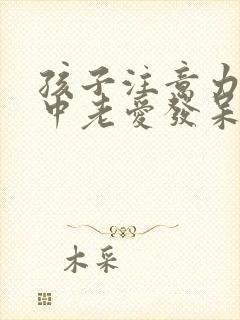 孩子注意力
中老愛發呆
木采